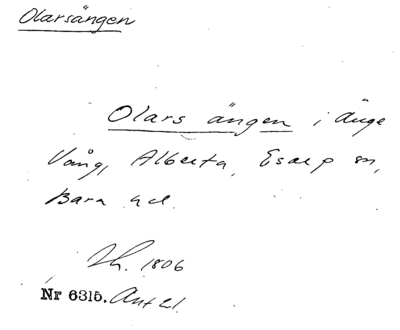 Olarsängen
Olars ängen i Änge
Vång, Alberta, Esarp sn,
Bara hd.
1806
Nr 6315. Ant 21.